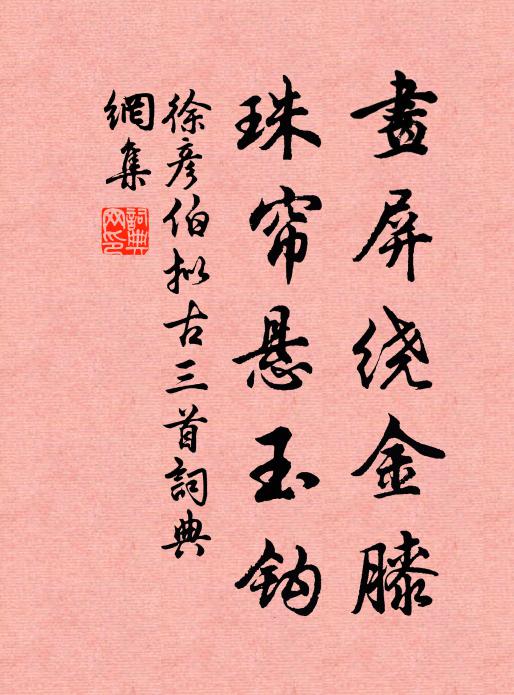 畫屏绕金膝
珠帘悬玉钩
徐彦伯拟古三首詞典
網集
詞典
网印